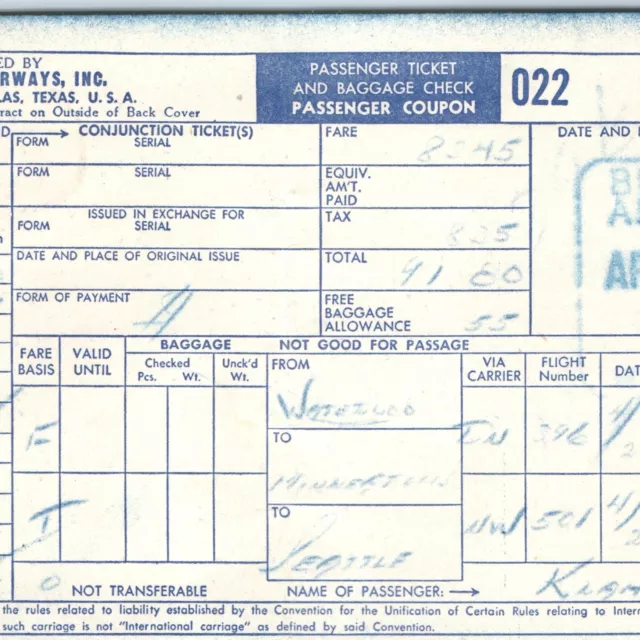 ED BY
RWAYS, INC.
LAS, TEXAS, U. S. A.
ract on Outside of Back Cover
PASSENGER TICKET
AND BAGGAGE CHECK
PASSENGER COUPON
022
CONJUNCTION TICKET(S)
FORM SERIAL
FORM SERIAL
ISSUED IN EXCHANGE FOR
FORM SERIAL
DATE AND PLACE OF ORIGINAL ISSUE
FORM OF PAYMENT
FARE 8345
EQUIV.
AM'T.
PAID
TAX 835
TOTAL 91 80
FREE
BAGGAGE
ALLOWANCE 55
DATE AND
FARE
BASIS
VALID
UNTIL
BAGGAGE
Checked
Pcs. Wt.
Unck'd
Wt.
NOT GOOD FOR PASSAGE
VIA
CARRIER
FLIGHT
Number
DAT
FROM
WATERLOO
F
TO
396
I
TO
SEATTLE
NW 501
NOT TRANSFERABLE
NAME OF PASSENGER:
the rules related to liability established by the Convention for the Unification of Certain Rules relating to Inter
such carriage is not "International carriage" as defined by said Convention.